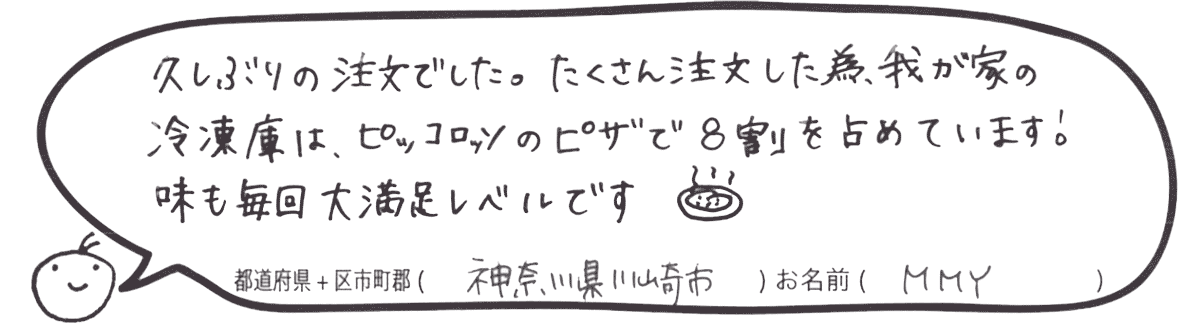 久しぶりの注文でした。たくさん注文した為、我が家の
冷凍庫は、ピッコロッソのピザで8割を占めています!
味も毎回大満足レベルです
都道府県+区市町郡( 神奈川県川崎市 )お名前( MMY )